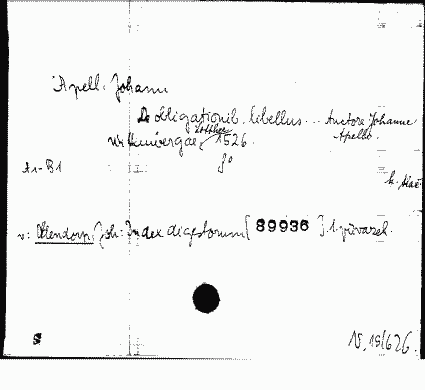 Apell. Johann
De obligationib. libellus... Auctore Johanne
Apello.
1526.
8°
A1-B1
v: Oldendorp, Joh: Index digestorum [ 89936 ] 1. přívazek.
N. 18/626.